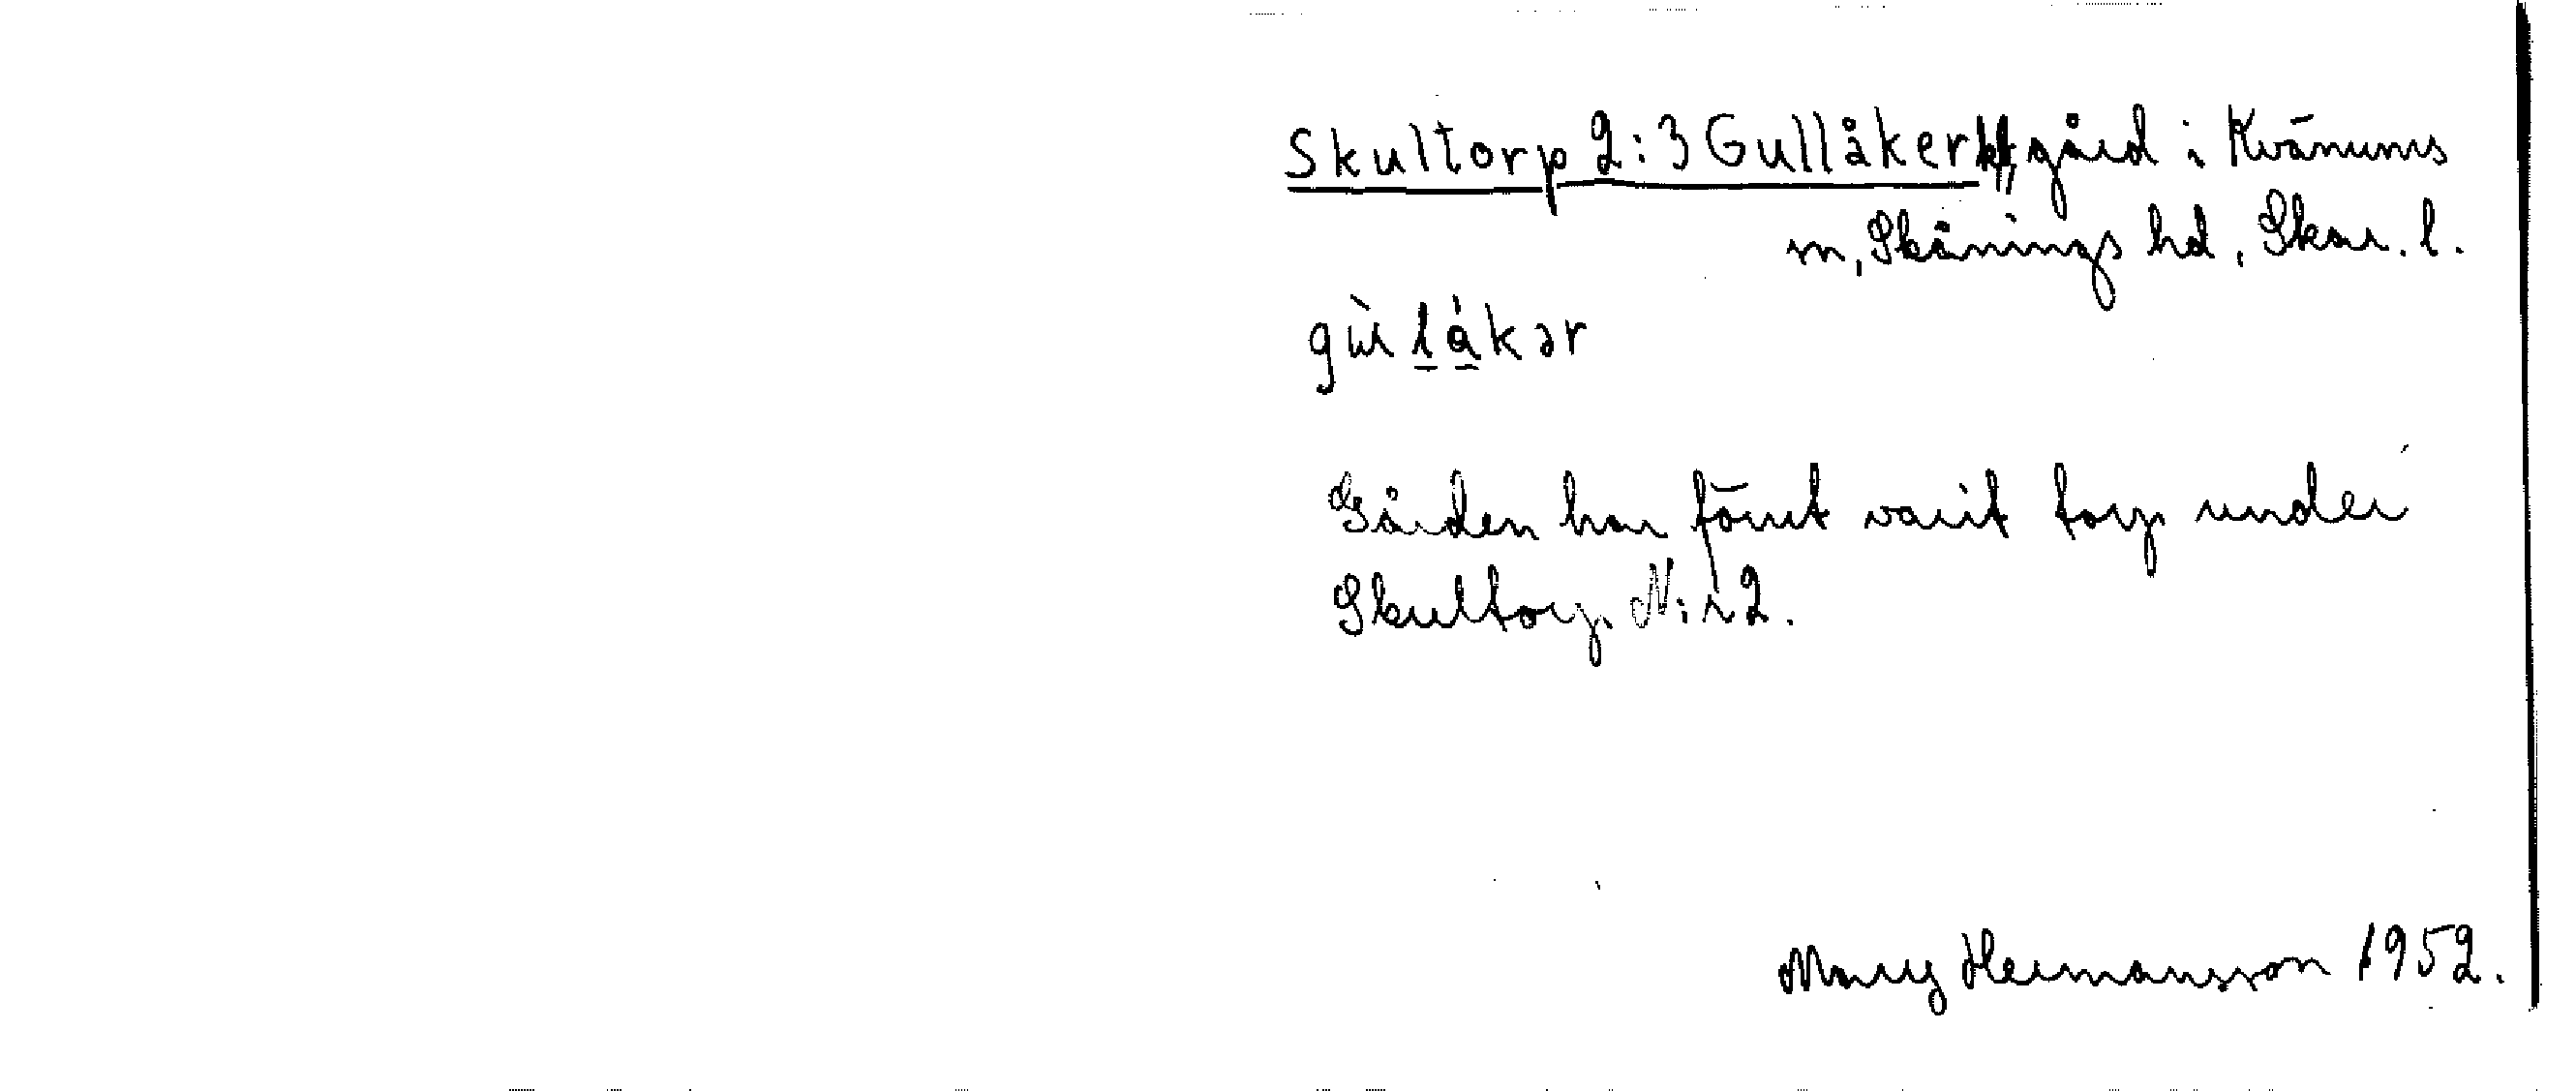 Skultorp 2:3 Gullåker, gård i Kvänums
m, Skånings hd, Skar. l.
gùlåkər
Gården har förut varit torp under
Skultorp N:r 2.
Mary Hermansson 1952.